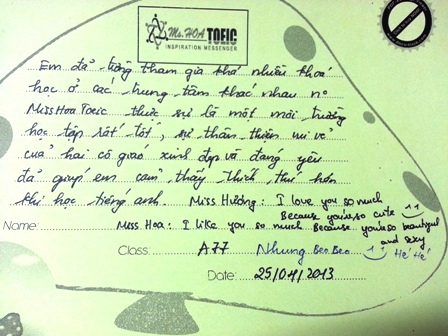 Ms.HOA TOEIC
INSPIRATION MESSENGER
Em đã từng tham gia khá nhiều khoá
học ở các trung tâm khác nhau n°
Miss Hoa Toeic thực sự là một môi trường
học tập rất tốt, sự thân thiện vui vẻ
của hai cô giáo xinh đẹp và đáng yêu
đã giúp em cảm thấy thích thú hơn
khi học tiếng anh. Miss Hường: I love you so much
Because you're so cute
Name: Miss Hoa: I like you so much Because you're so beautyful
and sexy
Class: A77 Nhung Beo Beo Hé Hé
Date: 25/04/2013